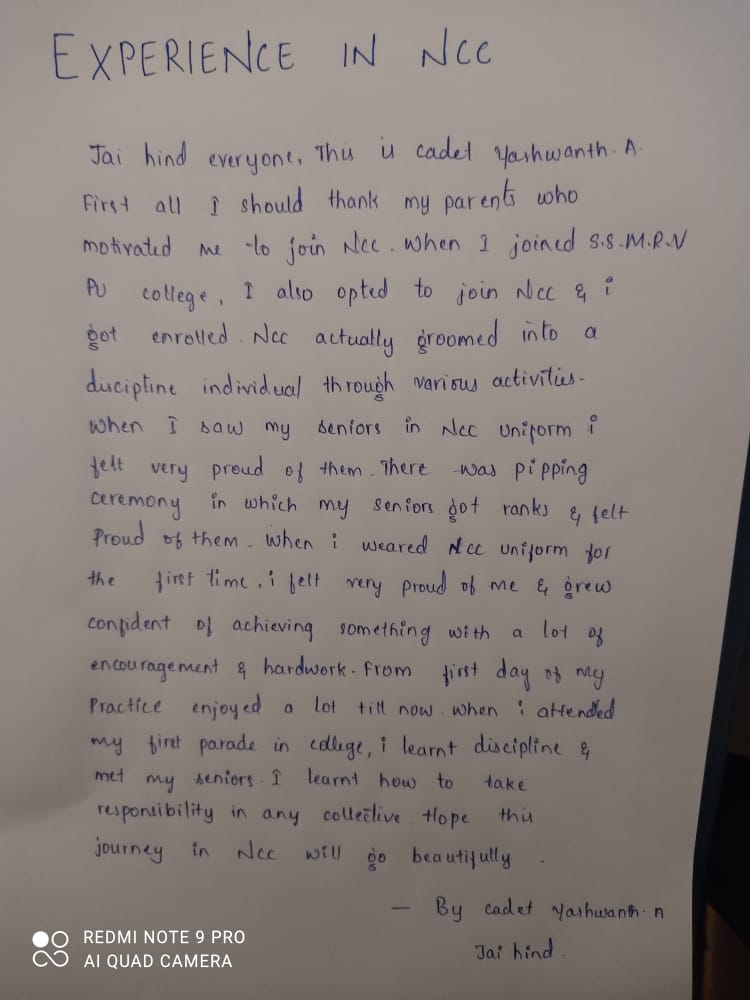 EXPERIENCE IN NCC
Jai hind everyone, This is cadet Yashwanth. A.
First all I should thank my parents who
motivated me to join Ncc. When I joined S.S.M.R.V
PU college, I also opted to join Ncc & i
got enrolled. Ncc actually groomed into a
discipline individual through various activities.
When I saw my seniors in Ncc uniform i
felt very proud of them. There was pipping
ceremony in which my seniors got ranks & felt
Proud of them. When i weared Ncc uniform for
the first time, i felt very proud of me & grew
confident of achieving something with a lot of
encouragement & hardwork. From first day of my
Practice enjoyed a lot till now. When i attended
my first parade in college, i learnt discipline &
met my seniors. I learnt how to take
responsibility in any collective. Hope this
journey in Ncc will go beautifully.
— By cadet Yashwanth. n
Jai hind.
REDMI NOTE 9 PRO
AI QUAD CAMERA